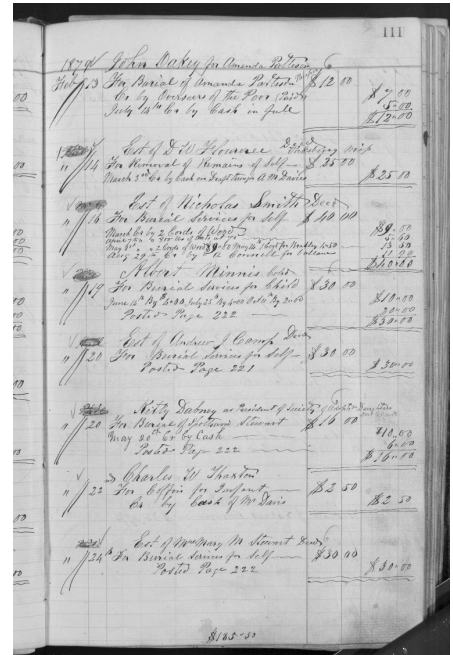 111
1879 John Oakey for Amanda Patterson
Feby 13 For Burial of Amanda Patterson $12 00
Cr by Overseers of the Poor (Paid) $7.00
July 14th Cr by Cash in full 5.00
$12.00
Est of D W Dec'd
" 14 For Removal of Remains of Self $25 00
March 3rd Cr by Cash on Draft through A M Davies $25 00
Est of Nicholas Smith Decd
" 16 For Burial Services for Self $40 00
March Cr by 2 Cords of Wood $9.00
Aug 29th Cr by Connell for balance
$40.00
Albert Minnis
" 19 For Burial Services for Child $30 00
June 14th By $10.00, July 25th By 5.00 $10.00
Posted Page 222 20.00
$30.00
Est of Andrew J Camp Decd
" 20 For Burial Services for Self $30 00
Posted Page 221 $30.00
Kitty Dabney as President of Society of Daughters
" 20 For Burial of Stewart $16 00
May 20th Cr by Cash $10.00
Posted Page 222 6.00
$16.00
Charles W Thaxton
" 22 For Coffin for Infant $2 50
Cr by Cash of Mr Davis $2 50
Est of Mrs Mary M Stewart Decd
" 24th For Burial Services for Self $30 00
Posted Page 222 $30.00
$185.50